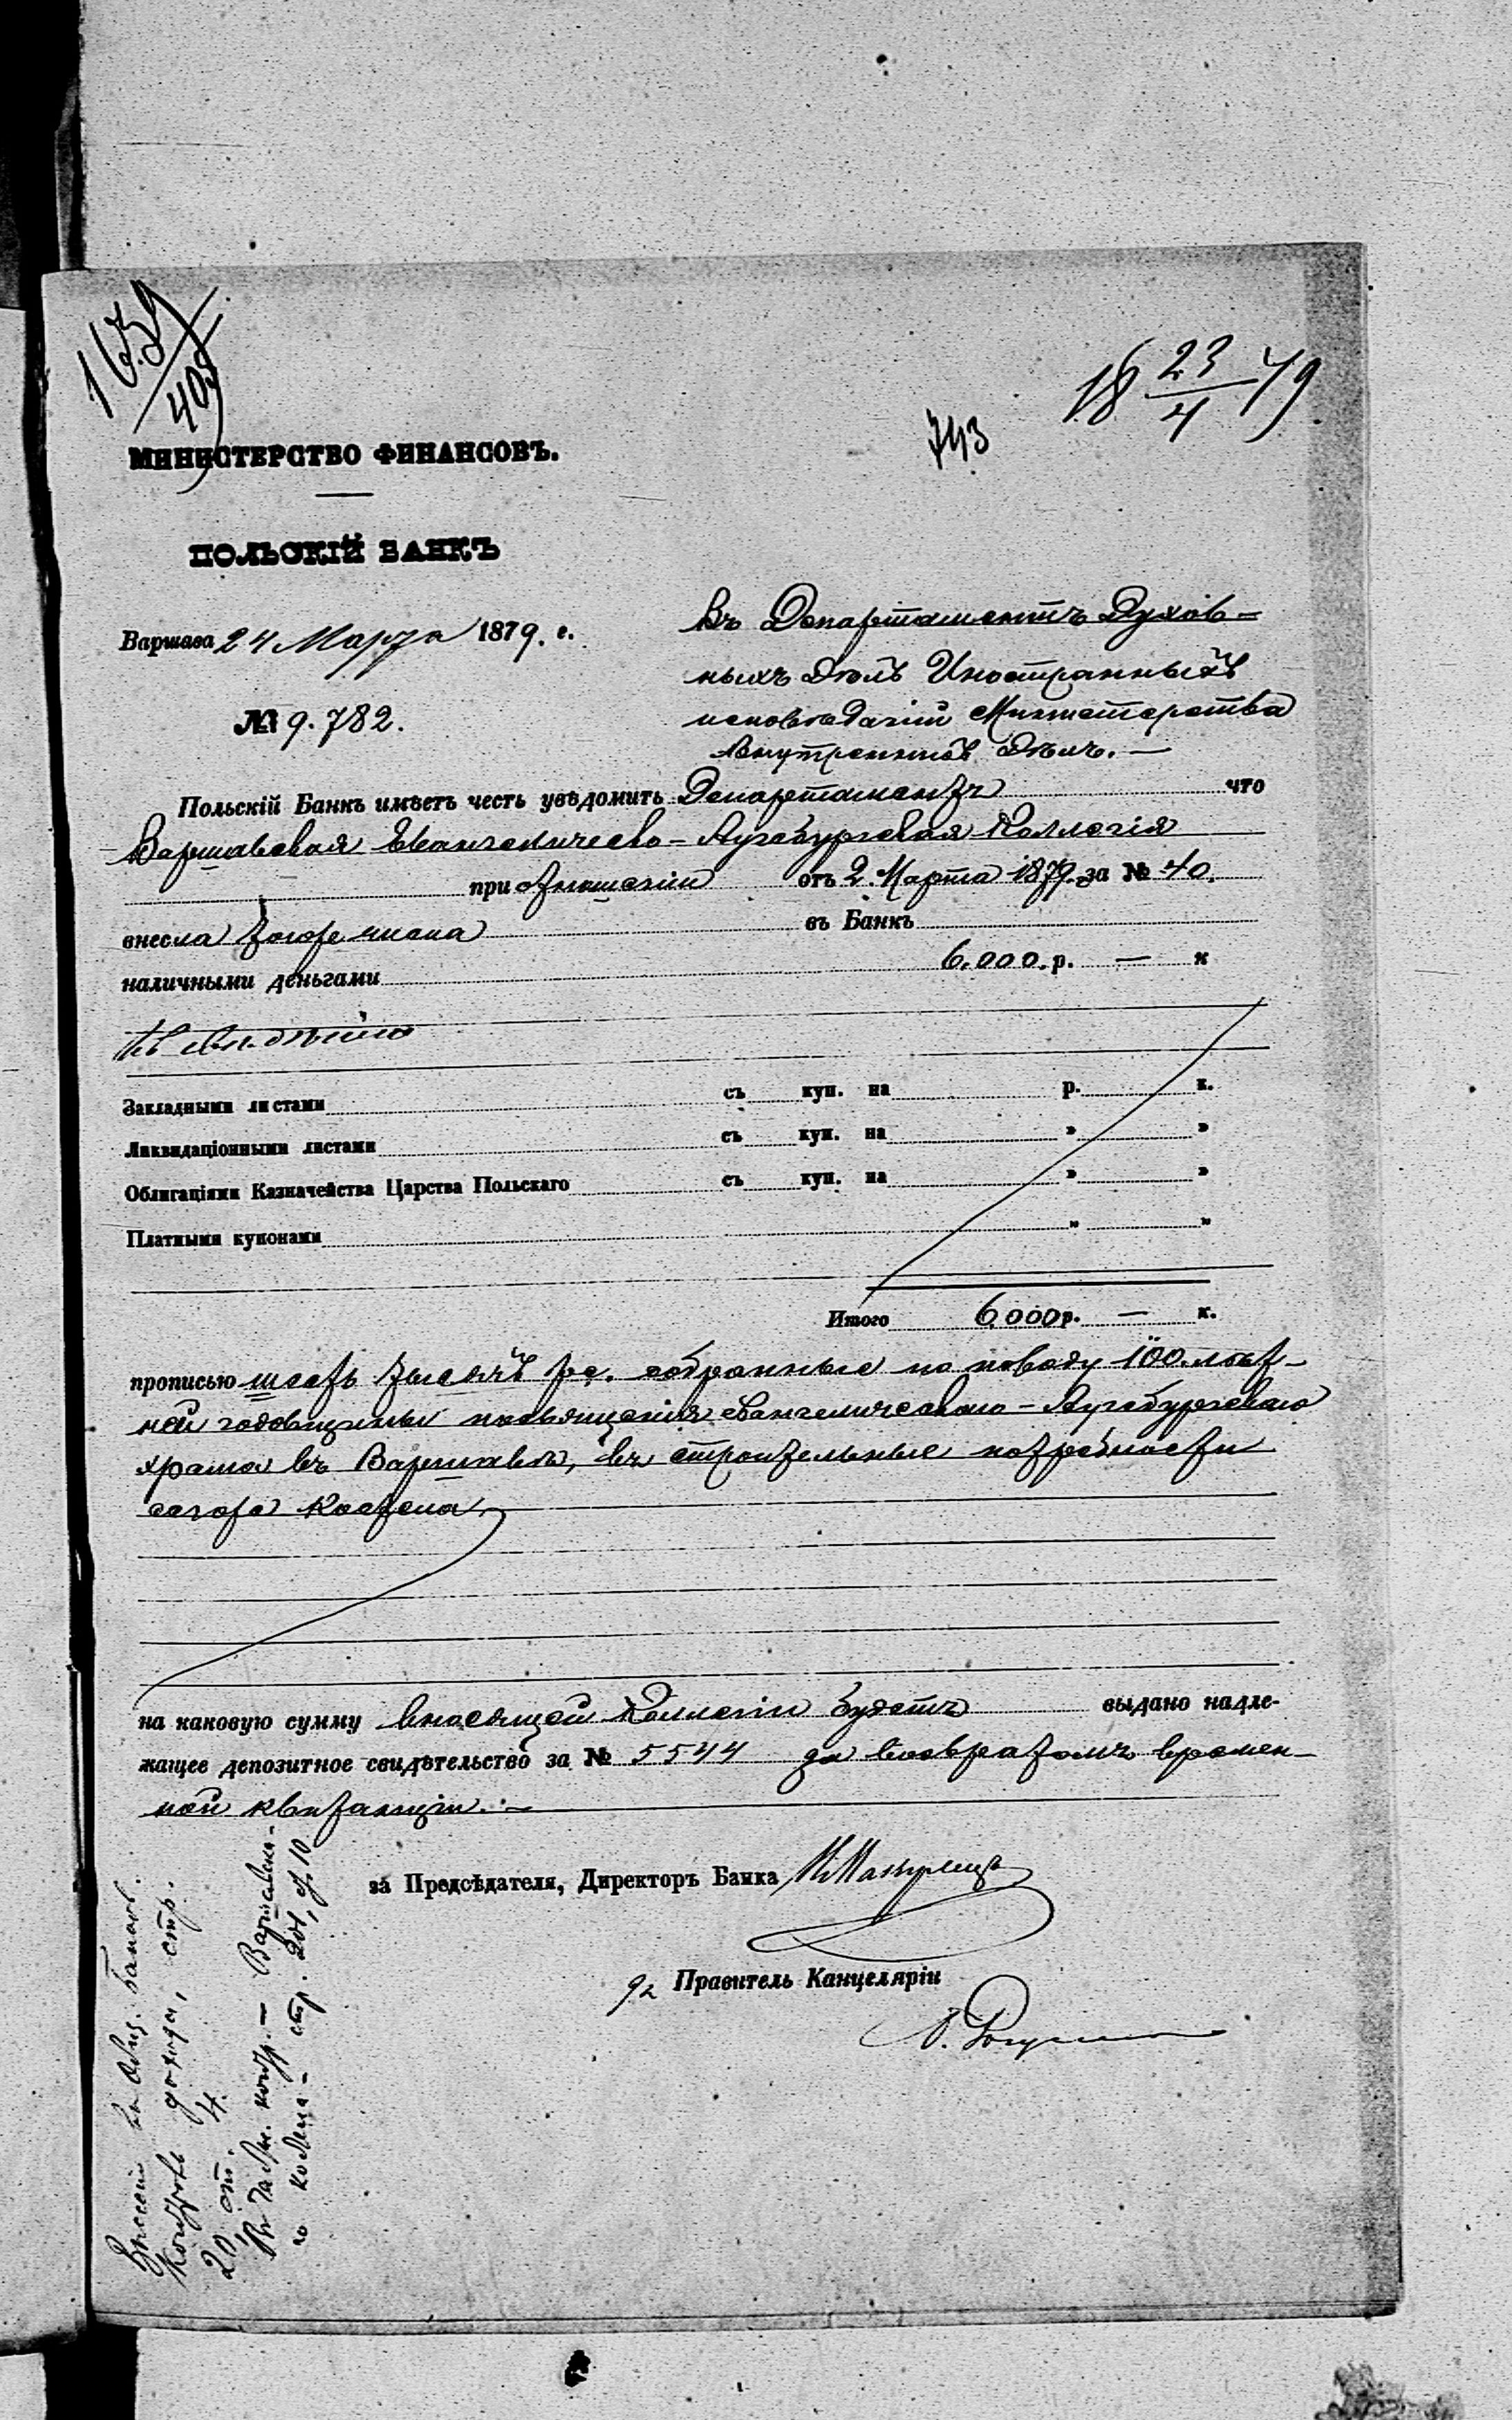 18 23/4 79
743
МИНИСТЕРСТВО ФИНАНСОВЪ.
ПОЛЬСКІЙ БАНКЪ
Варшава 24 Марта 1879. г.
№ 9.782.
Въ Департаментъ Духов-
ныхъ Дѣлъ Иностранныхъ
исповѣданій Министерства
Внутреннихъ Дѣлъ. —
Польскій Банкъ имѣетъ честь уведомить Департаментъ что
Варшавская Евангелическо-Аугсбургская Коллегія
при отношеніи отъ 2 Марта 1879. за № 40.
внесла того же числа въ Банкъ
наличными деньгами 6.000. р. — к
Закладными листами съ куп. на р. к.
Ликвидаціонными листами съ куп. на " "
Облигаціями Казначейства Царства Польскаго съ куп. на " "
Платными купонами " "
Итого 6.000 р. — к.
прописью шесть тысячъ рс. собранные по поводу 100. лѣт-
ней годовщины посвященія евангелическаго-Аугсбургскаго
храма въ Варшавѣ, въ строительные потребности
сего же костела
на каковую сумму вносящей Коллегіи будетъ выдано надле-
жащее депозитное свидѣтельство за № 5544 за возвратомъ времен-
ной квитанціи. —
за Предсѣдателя, Директоръ Банка
Правитель Канцеляріи